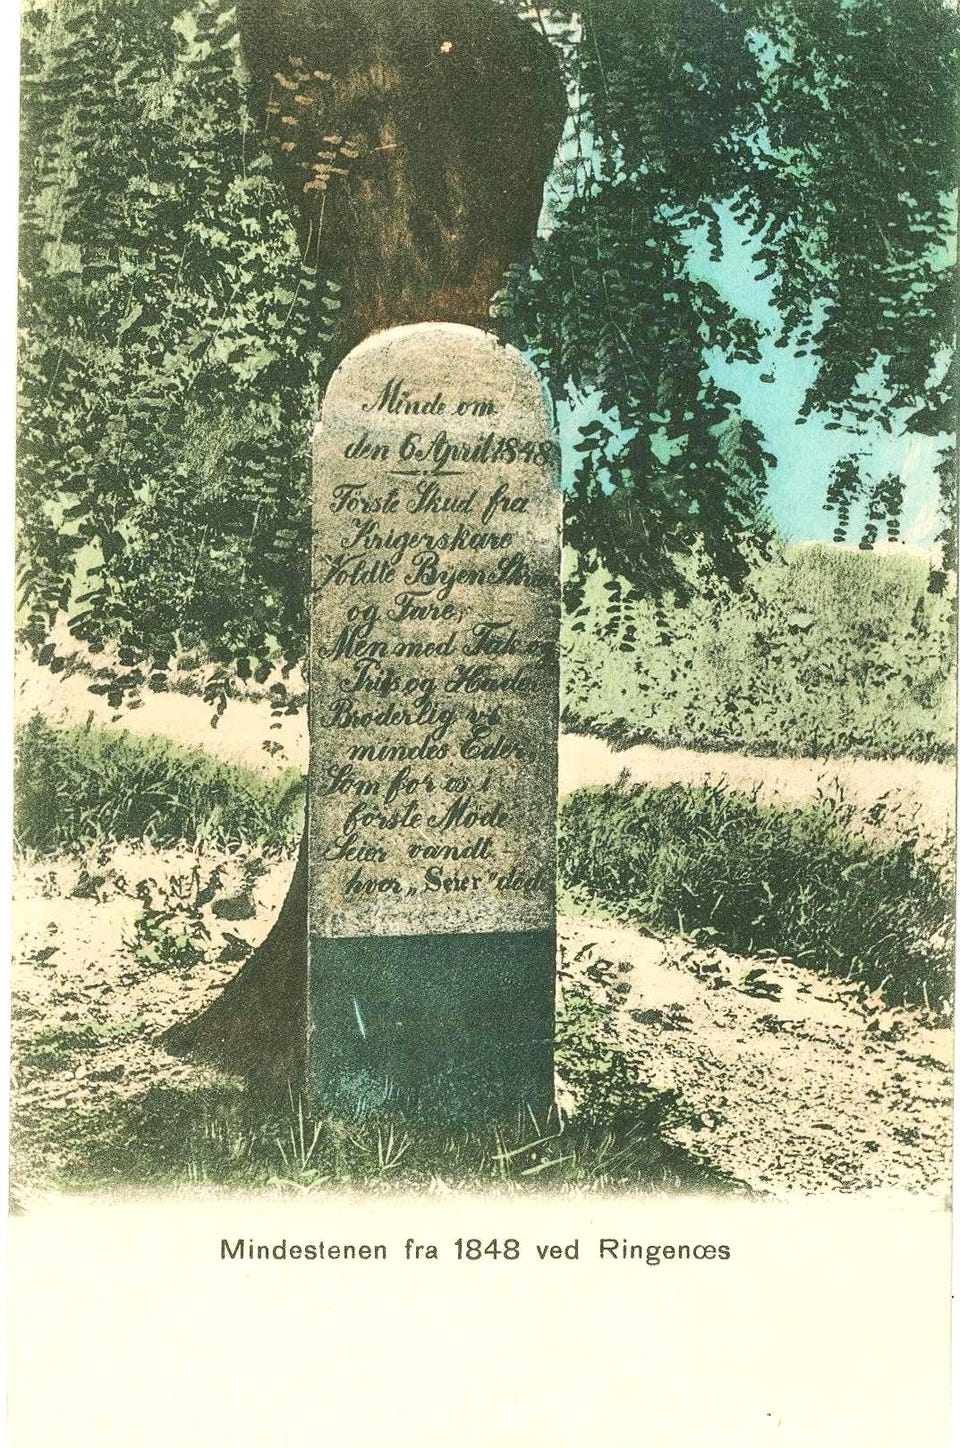 Minde om
den 6 April 1848
Förste Skud fra
Krigerskare
Voldte Byen Skræ
og Fare,
Men med Tak og
Priis og Hæder
Broderlig vi
mindes Eder
Som for os i
förste Möde
Seier vandt
hvor „Seier" döde
Mindestenen fra 1848 ved Ringenœs